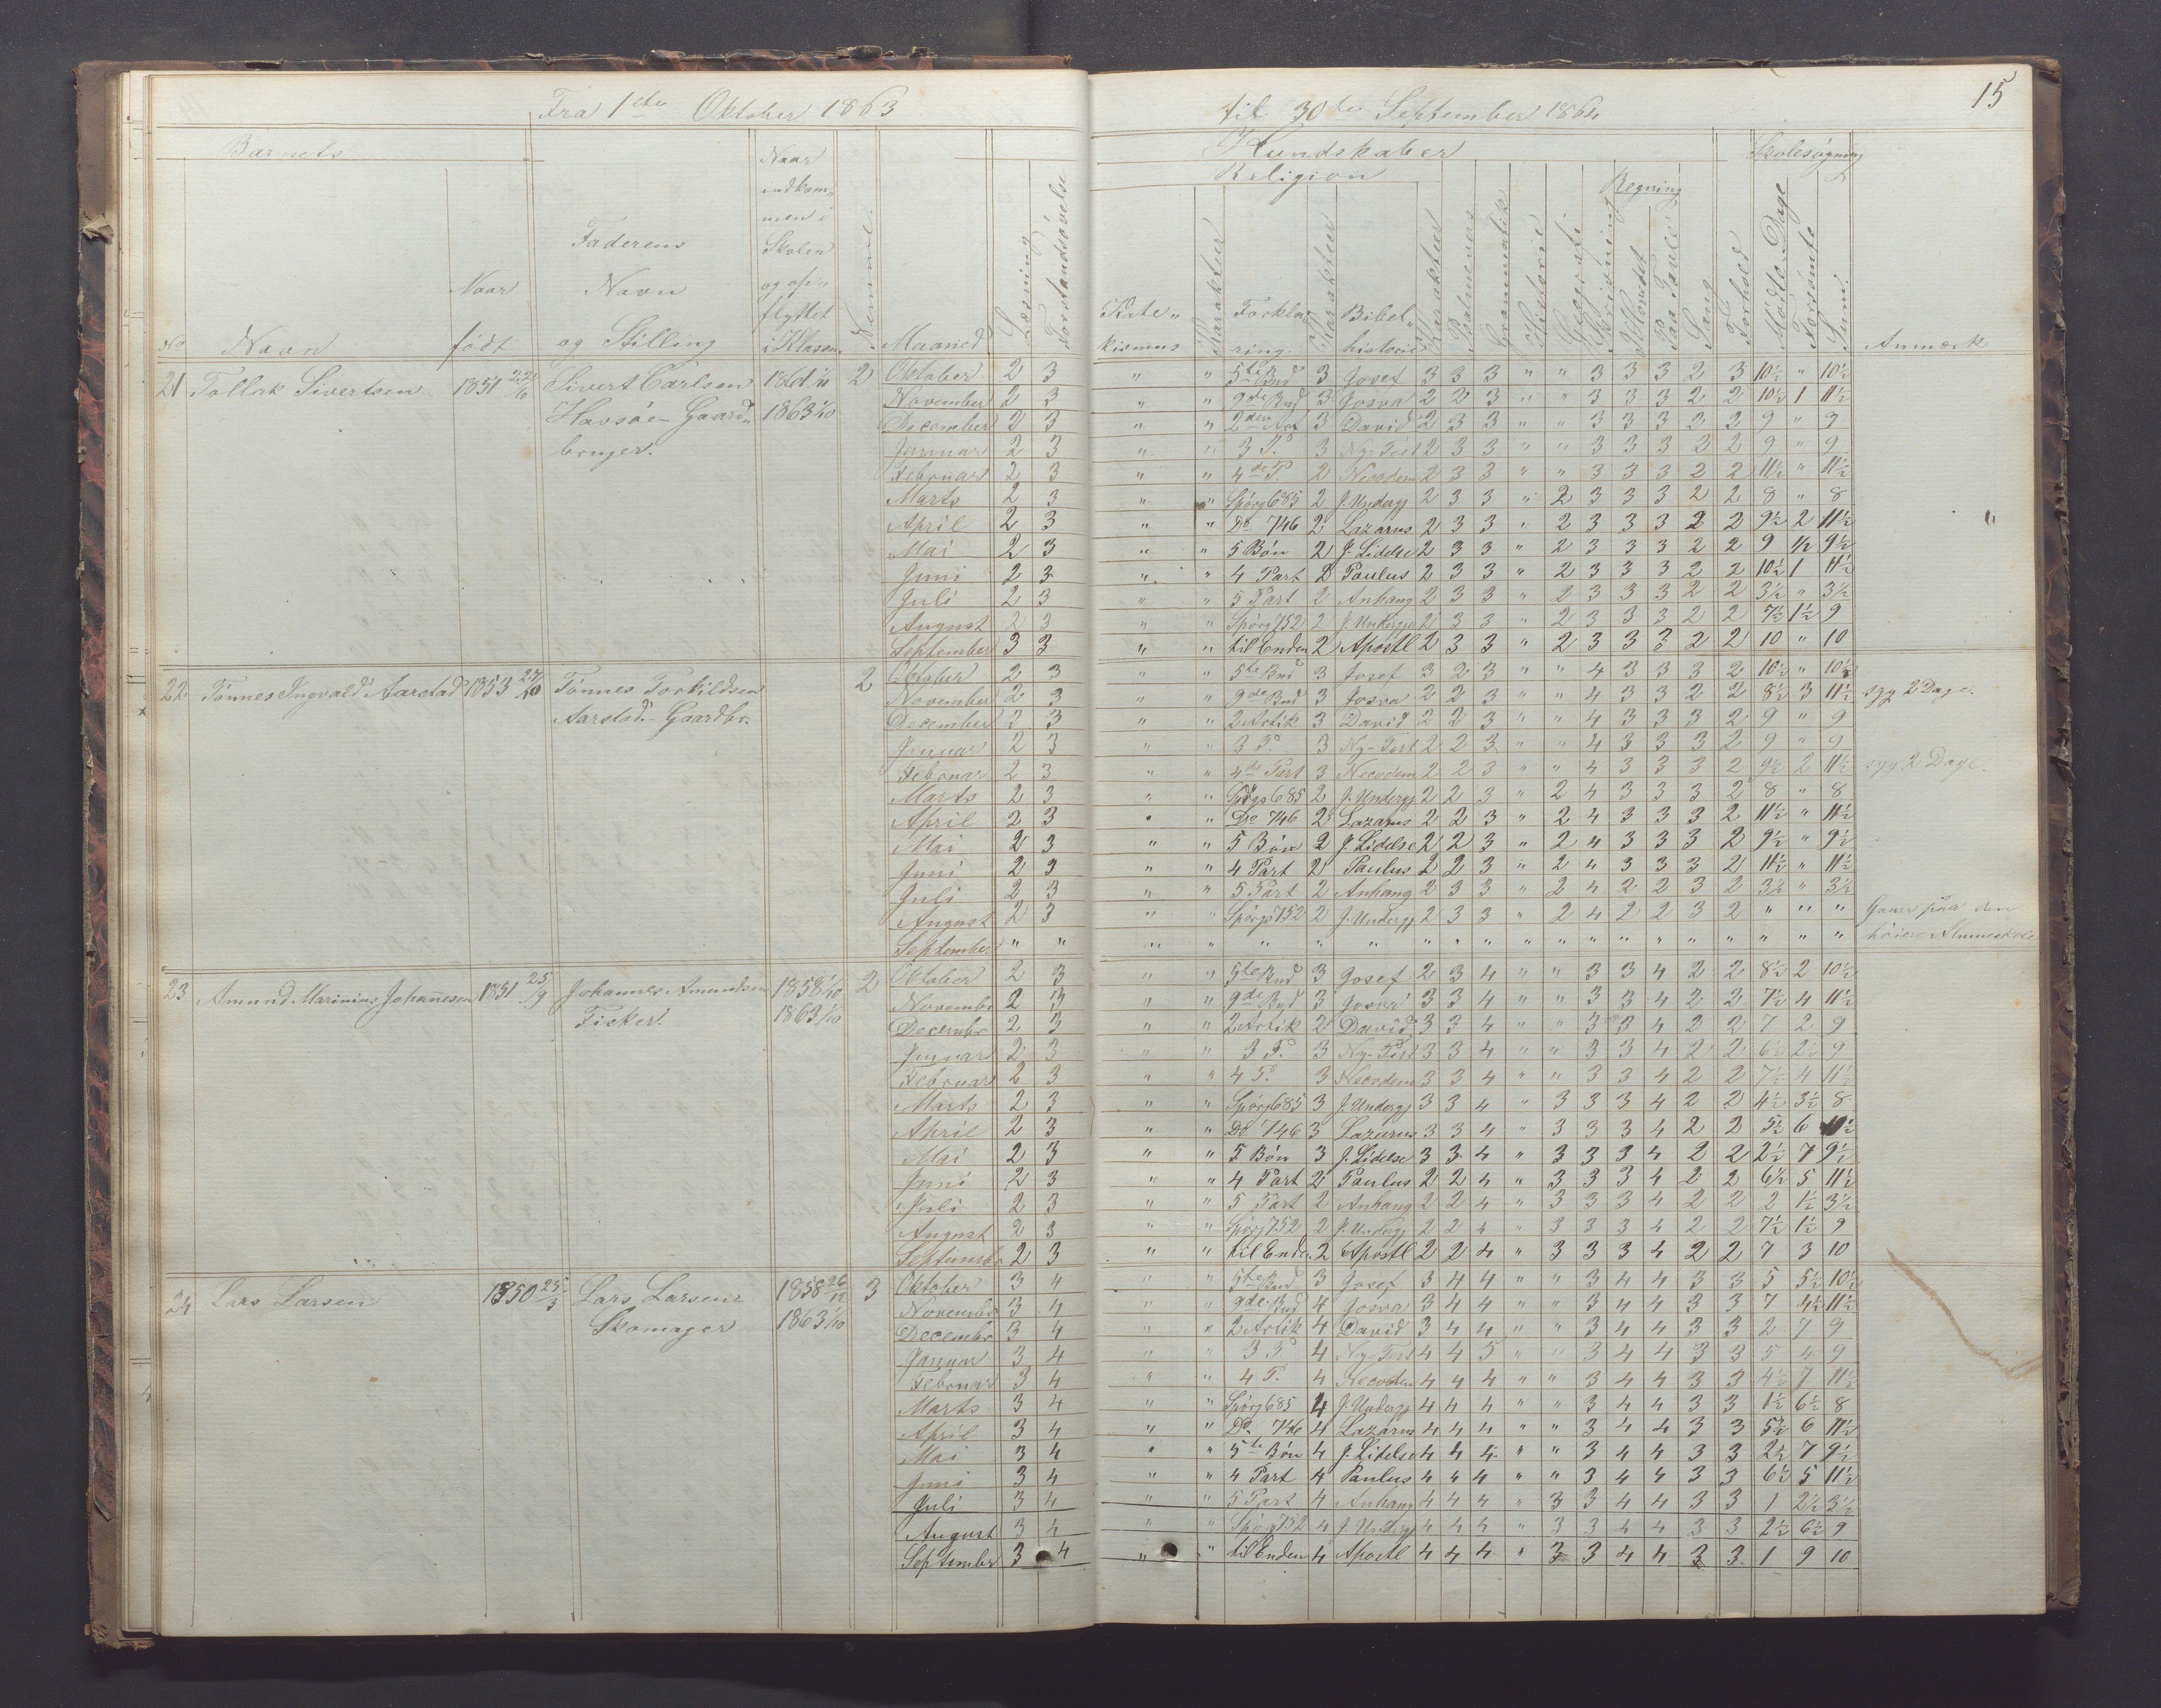 15
Fra 1ste Oktober 1863 til 30te September 1864
Barnets Kundskaber Skolesøgning
Religion Regning
No Navn Naar født Faderens Navn og Stilling Naar indkommen i Skolen og opflyttet i Klassen Nummer Maaned Læsning Forstandsøvelse Katekismus Karakter Forklaring Karakter Bibelhistorie Karakter Psalmevers Grammatik Historie Geografi Skrivning I Hovedet Paa Tavle Sang Forhold Mødte Dage Forsømte Sum Anmærk
21 Tollak Sivertsen 1851 Sivert Carlsen 1861 1/10 2 Oktober 2 3 " " 5te Bud 3 Josef 3 3 3 " " 3 3 3 2 3 10½ " 10½
Havsøe - Gaard- 1863 1/10 November 2 3 " " 9de Bud 3 Josva 2 2 3 " " 3 3 3 2 2 10½ 1 11½
December 2 3 " " 2den Art 3 David 2 3 3 " " 3 3 3 2 2 9 " 9
bruger. Januar 2 3 " " 3 P. 3 Ny-Test 2 3 3 " " 3 3 3 2 2 9 " 9
Februar 2 3 " " 4de P. 2 Necodem 2 3 3 " " 3 3 3 2 2 11½ " 11½
Marts 2 3 " " Spörg 685 2 J. Undergj 2 3 3 " 2 3 3 3 2 2 8 " 8
April 2 3 " " Do 746 2 Lazarus 2 3 3 " 2 3 3 3 2 2 9½ 2 11½
Mai 2 3 " " 5 Bön 2 J. Lidelse 2 3 3 " 2 3 3 3 2 2 9 ½ 9½
Juni 2 3 " " 4 Part 2 Paulus 2 3 3 " 2 3 3 3 2 2 10½ 1 11½
Juli 2 3 " " 5 Part 2 Anhang 2 3 3 " 2 3 3 3 2 2 3½ " 3½
August 2 3 " " Spörg 752 2 J. Undergj 2 3 3 " 2 3 3 3 2 2 7½ 1½ 9
September 3 3 " " til Enden 2 Apostl 2 3 3 " 2 3 3 3 2 2 10 " 10
22 Tönnes Ingvald Aarstad 1853 27/10 Tönnes Torkildsen 2 Oktober 2 3 " " 5te Bud 3 Josef 3 2 3 " " 4 3 3 3 2 10½ " 10½
Aarstad - Gaardbr. November 2 3 " " 9de Bud 3 Josva 2 2 3 " " 4 3 3 2 2 8½ 3 11½ syg 2 Dage.
December 2 3 " " 2 Artik 3 David 2 2 3 " " 4 3 3 3 2 9 " 9
Januar 2 3 " " 3 P. 3 Ny-Test 2 2 3 " " 4 3 3 3 2 9 " 9
Februar 2 3 " " 4de Part 3 Necodem 2 2 3 " " 4 3 3 3 2 9½ 2 11½ syg 2 Dage.
Marts 2 3 " " Spörgs 685 2 J. Undergj 2 2 3 " 2 4 3 3 3 2 8 " 8
April 2 3 " " Do 746 2 Lazarus 2 2 3 " 2 4 3 3 3 2 11½ " 11½
Mai 2 3 " " 5 Bön 2 J. Lidelse 2 2 3 " 2 4 3 3 3 2 9½ " 9½
Juni 2 3 " " 4 Part 2 Paulus 2 2 3 " 2 4 3 3 3 2 11½ " 11½
Juli 2 3 " " 5 Part 2 Anhang 2 3 3 " 2 4 2 2 3 2 3½ " 3½
August 2 3 " " Spörgs 752 2 J. Undergj 2 3 3 " 2 4 2 2 3 2 " " " Gaaer paa den
September " " " " " " " " " " " " " " " " " " " " høiere Almueskole
23 Amund Marinius Johan̄esen 1851 25/9 Johannes Amundsen 1858 1/10 2 Oktober 2 3 " " 5te Bud 3 Josef 2 3 4 " " 3 3 4 2 2 8½ 2 10½
Fisker. 1863 1/10 Novembr 2 3 " " 9de Bud 3 Josva 3 3 4 " " 3 3 4 2 2 7½ 4 11½
Decembr 2 3 " " 2 Artik 2 David 3 3 4 " " 3 3 4 2 2 7 2 9
Januar 2 3 " " 3 P. 3 Ny-Test 3 3 4 " " 3 3 4 2 2 6½ 2½ 9
Februar 2 3 " " 4 P. 3 Necodem 3 3 4 " " 3 3 4 2 2 7½ 4 11½
Marts 2 3 " " Spörg 685 3 J. Undergj 3 3 4 " 3 3 3 4 2 2 4½ 3½ 8
April 2 3 " " Do 746 3 Lazarus 3 3 4 " 3 3 3 4 2 2 5½ 6
Mai 2 3 " " 5 Bön 3 J. Lidelse 3 3 4 " 3 3 3 4 2 2 2½ 7 9½
Juni 2 3 " " 4 Part 2 Paulus 2 2 4 " 3 3 3 4 2 2 6½ 5 11½
Juli 2 3 " " 5 Part 2 Anhang 2 2 4 " 3 3 3 4 2 2 2 1½ 3½
August 2 3 " " Spörg 752 2 J. Undergj 2 2 4 " 3 3 3 4 2 2 7½ 1½ 9
Septembr 2 3 " " til Enden 2 Apostl 2 2 4 " 3 3 3 4 2 2 7 3 10
24 Lars Larsen 1850 25/3 Lars Larsen 1858 26/12 3 Oktober 3 4 " " 5te Bud 3 Josef 3 4 4 " " 3 4 4 3 3 5 5½ 10½
Skomager 1863 1/10 Novembr 3 4 " " 9de Bud 4 Josva 3 4 4 " " 3 4 4 3 3 7 4½ 11½
Decembr 3 4 " " 2 Artik 4 David 3 4 4 " " 3 4 4 3 3 2 7 9
Januar 3 4 " " 3 P 4 Ny-Test 4 4 5 " " 3 4 4 3 3 5 4 9
Februar 3 4 " " 4 P. 4 Necodem 4 4 4 " " 3 4 4 3 3 4½ 7 11½
Marts 3 4 " " Spörg 685 4 J. Undergj 4 4 4 " " 3 4 4 3 3 1½ 6½ 8
April 3 4 " " Do 746 4 Lazarus 4 4 4 " " 3 4 4 3 3 5½ 6 11½
Mai 3 4 " " 5te Bön 4 J. Lidelse 4 4 4 " " 3 4 4 3 3 2½ 7 9½
Juni 3 4 " " 4 Part 4 Paulus 4 4 4 " " 3 4 4 3 3 6½ 5 11½
Juli 3 4 " " 5 Part 4 Anhang 4 4 4 " 3 3 4 4 3 3 1 2½ 3½
August 3 4 " " Spörg 752 4 J. Undergj 4 4 4 " 3 3 4 4 3 3 2½ 6½ 9
Septembr 3 4 " " til Enden 4 Apostl 4 4 4 " 3 3 4 4 3 3 1 9 10